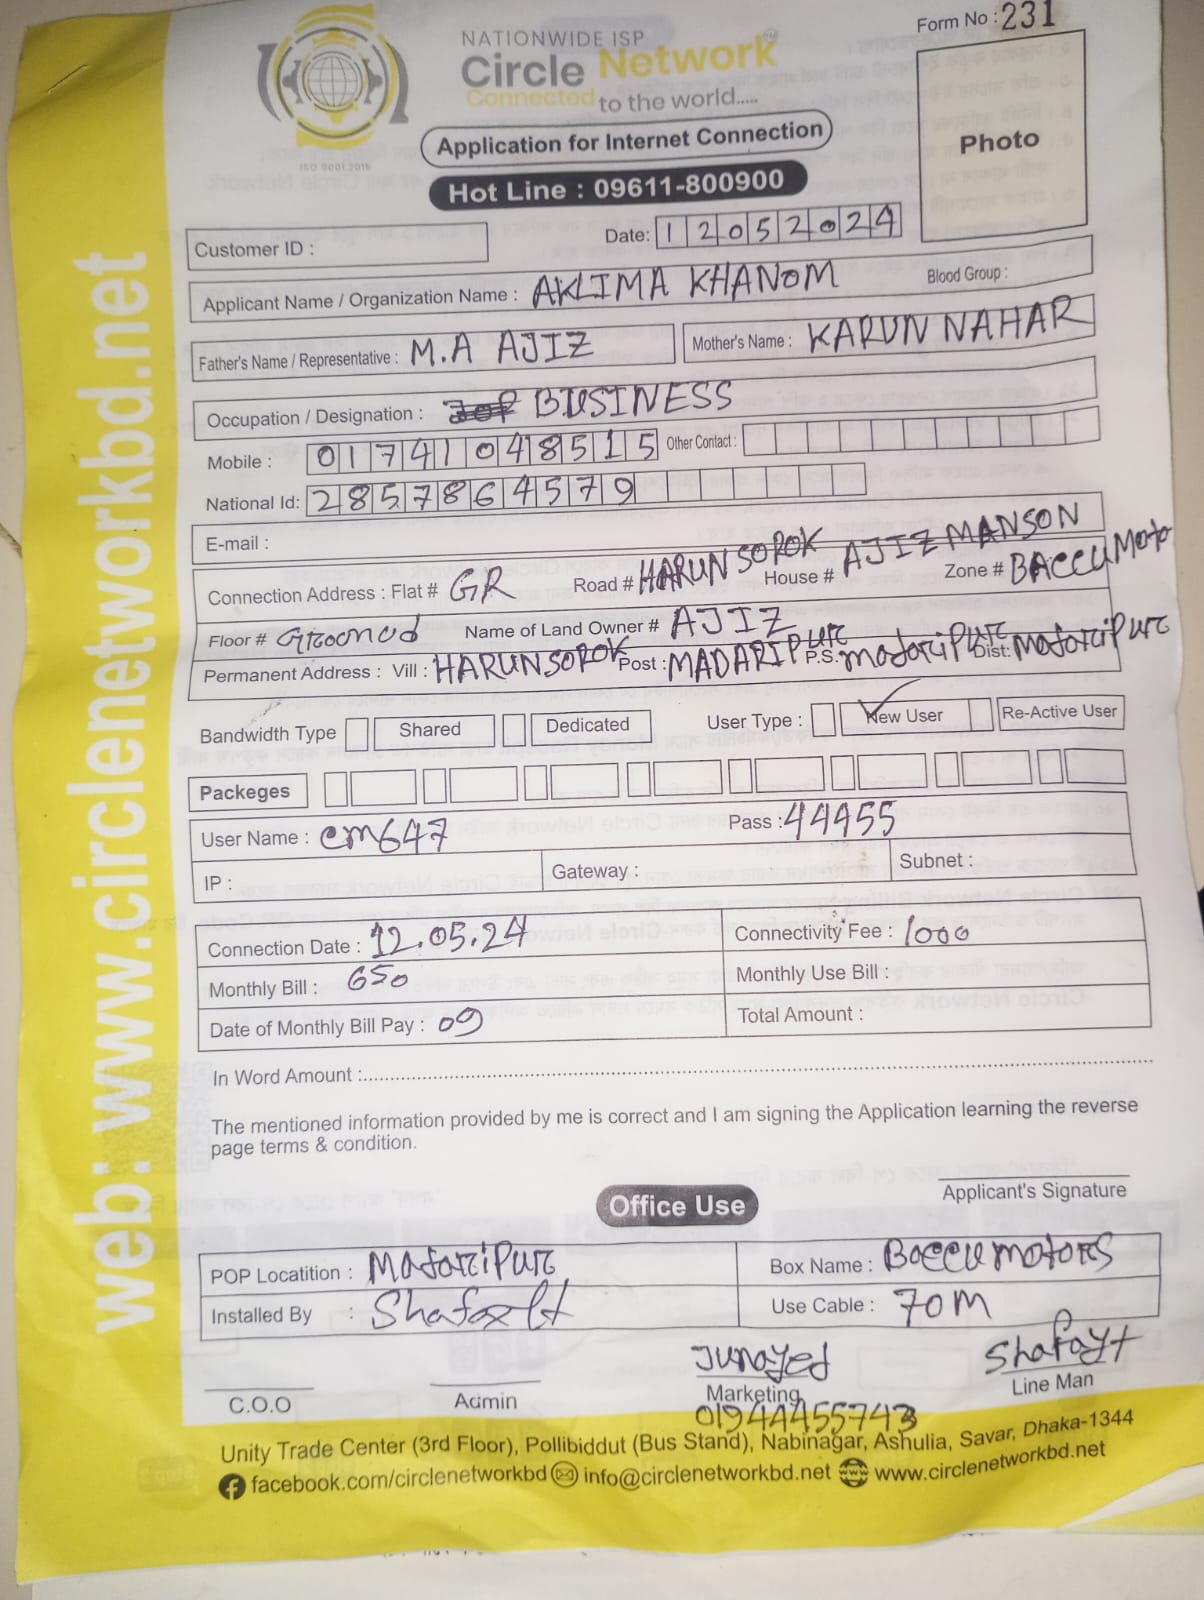 Form No : 231
NATIONWIDE ISP
Circle Network
Connected to the world.....
ISO 9001:2015
Application for Internet Connection
Photo
Hot Line : 09611-800900
Customer ID :
Date: 12052024
Applicant Name / Organization Name : AKLIMA KHANOM Blood Group :
Father's Name / Representative : M.A AJIZ Mother's Name : KARUN NAHAR
Occupation / Designation : BUSINESS
Mobile : 01741048515 Other Contact :
National Id: 2857864579
E-mail :
Connection Address : Flat # GR Road # HARUN SOROK House # AJIZ MANSON Zone # BACCU Moto
Floor # Groonod Name of Land Owner # AJIZ
Permanent Address : Vill : HARUN SOROK Post : MADARIPUR P.S. madariPur Dist: MadariPur
Bandwidth Type Shared Dedicated User Type : New User Re-Active User
Packeges
User Name : cm647 Pass : 44455
IP : Gateway : Subnet :
Connection Date : 12.05.24 Connectivity Fee : 1000
Monthly Bill : 650 Monthly Use Bill :
Date of Monthly Bill Pay : 09 Total Amount :
In Word Amount :
The mentioned information provided by me is correct and I am signing the Application learning the reverse
page terms & condition.
Applicant's Signature
Office Use
POP Locatition : MadariPur Box Name : Baccu motors
Installed By : Use Cable : 70M
Junayed Shafayt
C.O.O Admin Marketing Line Man
01944455743
Unity Trade Center (3rd Floor), Pollibiddut (Bus Stand), Nabinagar, Ashulia, Savar, Dhaka-1344
facebook.com/circlenetworkbd info@circlenetworkbd.net www.circlenetworkbd.net
web: www.circlenetworkbd.net